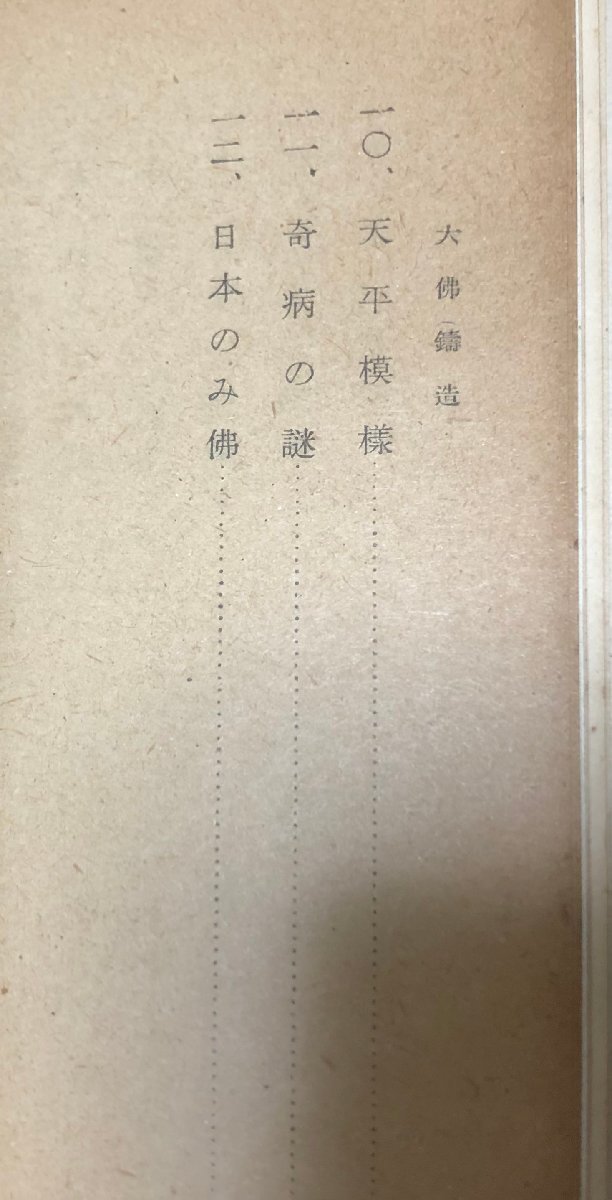 大佛鑄造
一〇、天平模樣
一一、奇病の謎
一二、日本のみ佛